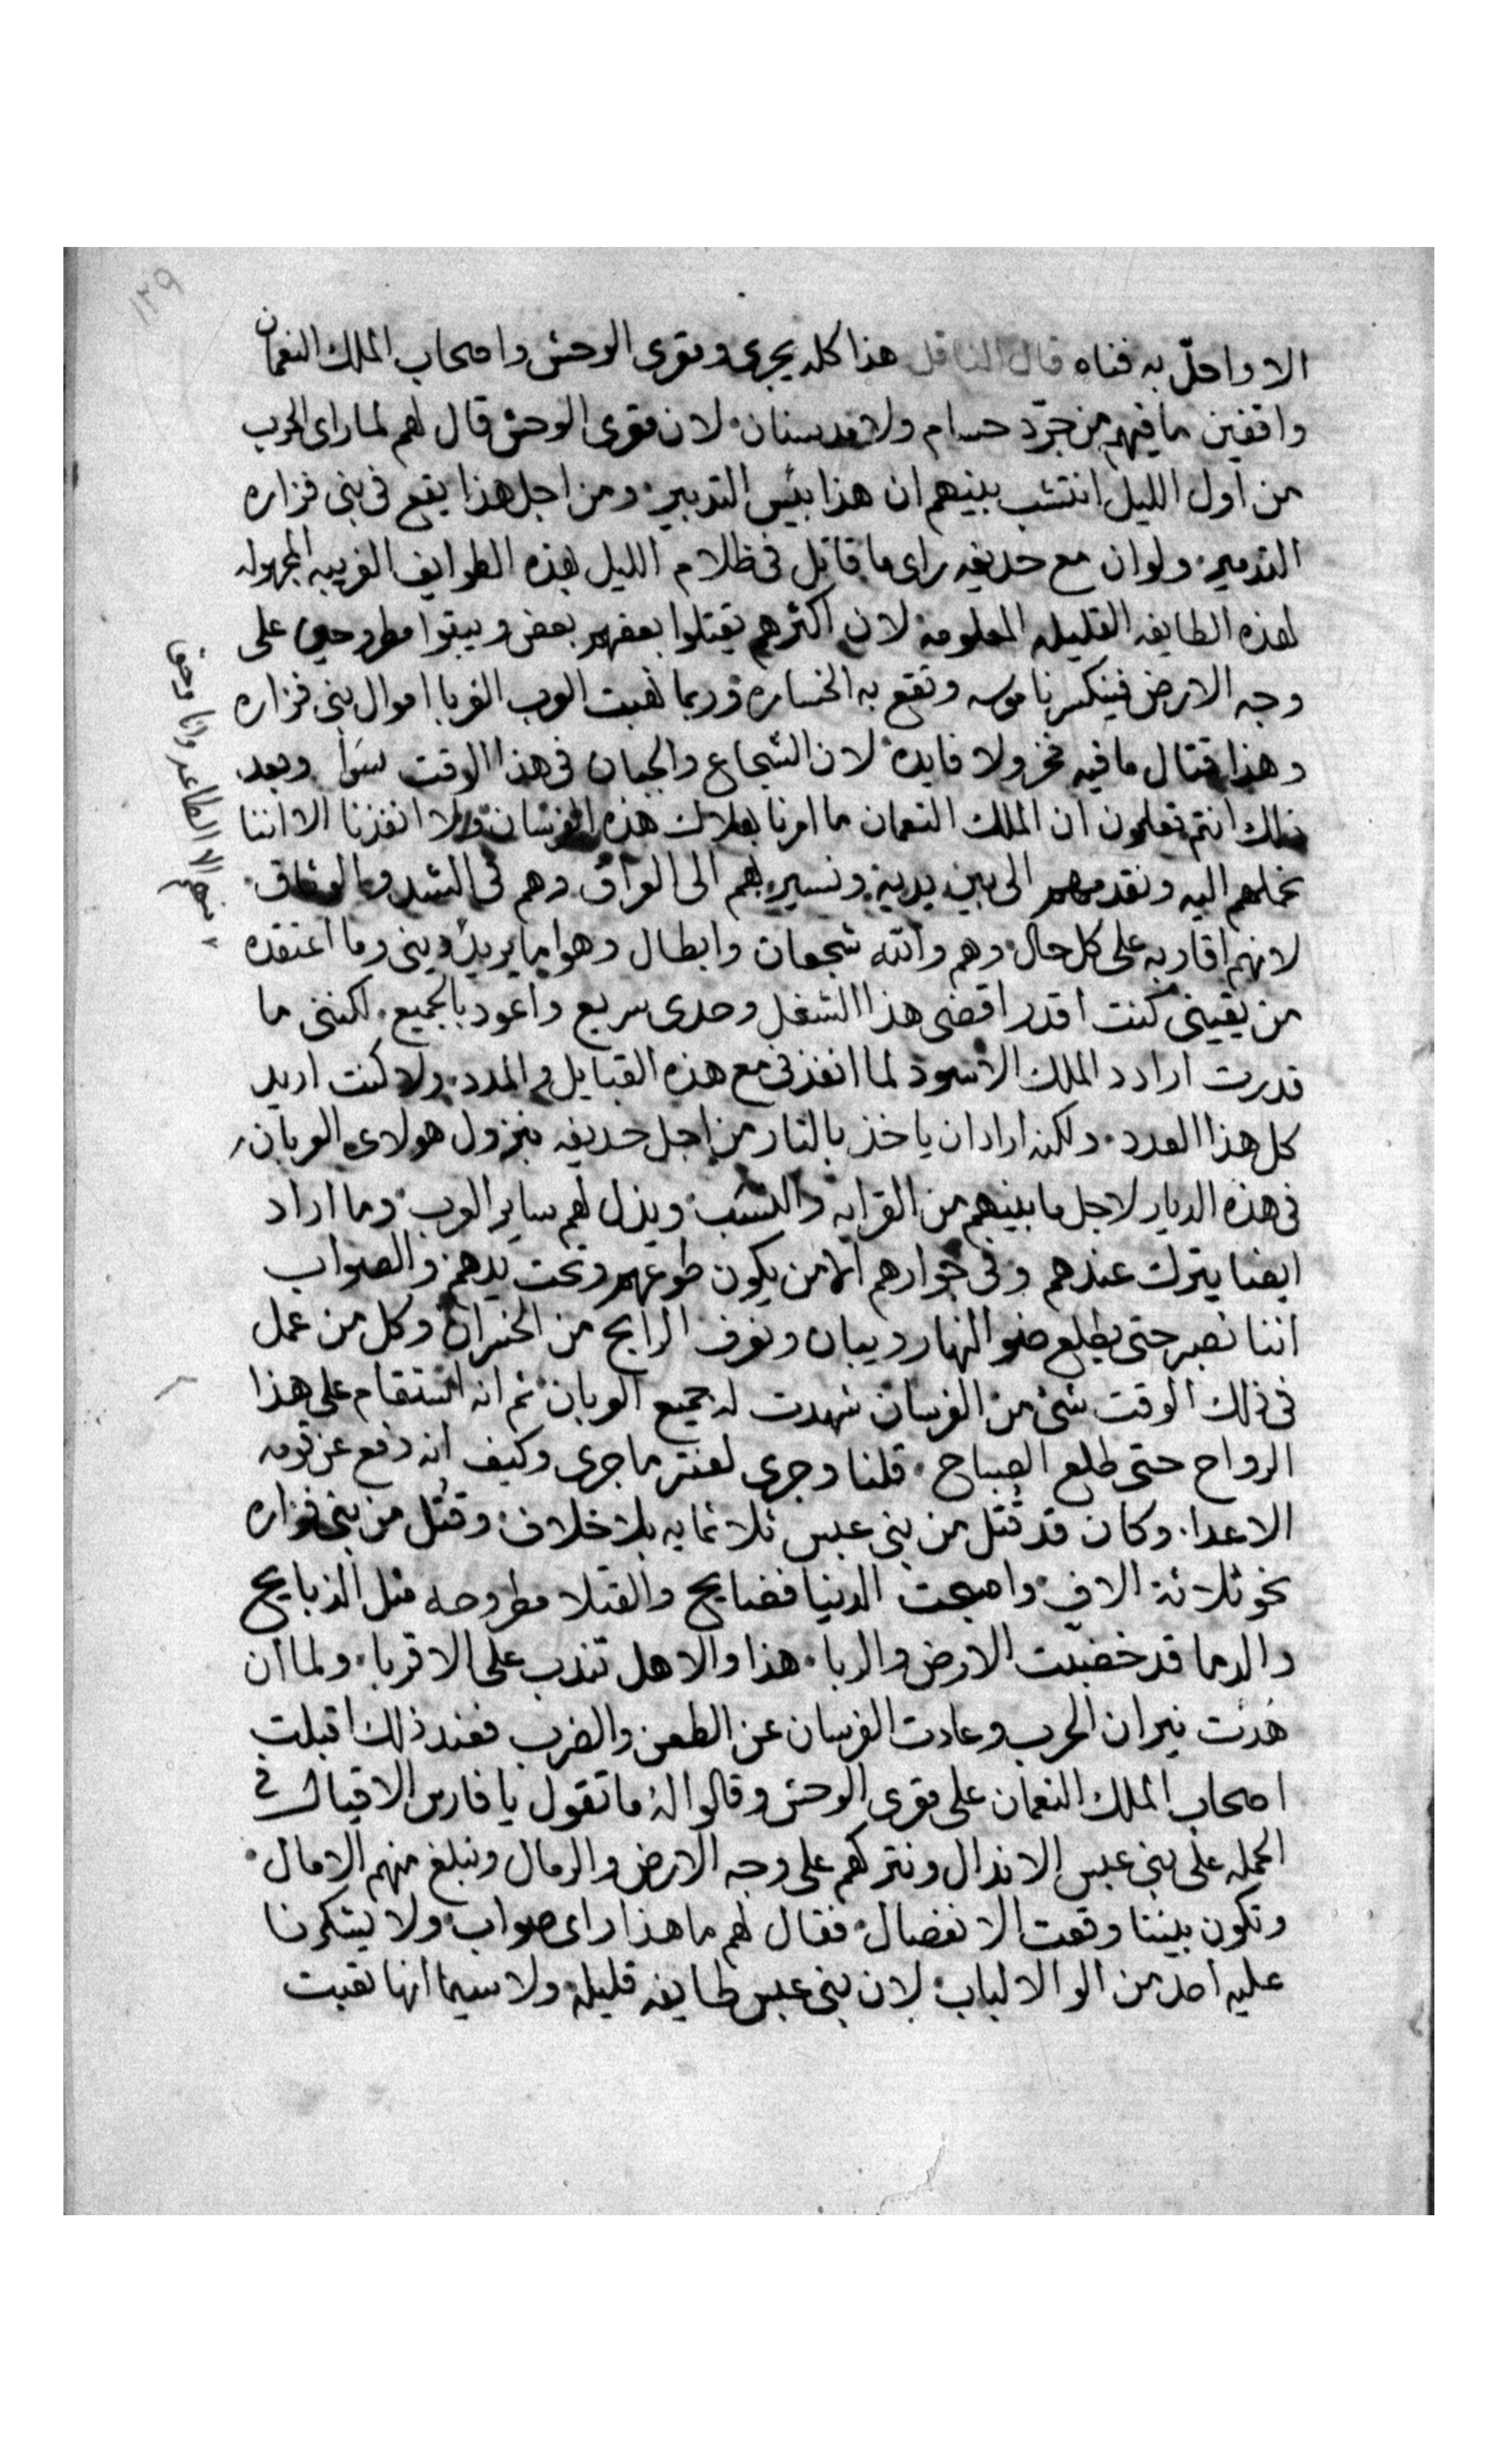 ١٢٩
الا واحلّ به فناه قال الناقل هذا كله يجرى ومقرى الوحش واصحاب الملك النعمان
واقفين ما فيهم من جرّد حسام ولا مد سنان لان مقرى الوحش قال لهم لما راى الحرب
من اول الليل انتشب بينهم ان هذا بئيس التدبير ومن اجل هذا يقع فى بنى فزاره
التدمير ولو ان مع حديفه راى ما قاتل فى ظلام الليل بهذه الطوايف الغريبه المجهوله
لهذه الطايفه القليله المعلومه لان اكثرهم يقتلوا بعضهم بعض ويبقوا مطروحين على
وجه الارض فينكسر ناموسه وتقع به الخساره وربما نهبت العرب الغربا اموال بنى فزاره
وهذا قتال ما فيه فخر ولا فايده لان الشجاع والجبان فى هذا الوقت سَوا وبعد
ذلك انتم تعلمون ان الملك النعمان ما امرنا بهلاك هذه الفرسان ولا انفذنا الا اننا
نحملهم اليه ونقدمهم الى بين يديه ونسير بهم الى العراق وهم فى الشد والوثاق
لانهم اقاربه على كل حال وهم والله شجعان وابطال وهوا ما يريد وينى وما اعتقده
من يقينى كنت اقدر اقضى هذا الشغل وحدى سريع واعود بالجميع لكننى ما
قدرت ارادد الملك الاسود لما انفذنى مع هذه القبايل والمدد ولا كنت اريد
كل هذا العدد ولكنه اراد ان ياخذ بالثار من اجل حديفه بنزول هولاى العربان
فى هذه الديار لاجل ما بينهم من القرابه والنسب ويذل لهم ساير العرب وما اراد
ايضا يترك عندهم وفى جوارهم الا من يكون طوعهم وتحت يدهم والصواب
اننا نصبر حتى يطلع ضو النهار ويبان ونعرف الرابح من الخسران وكل من عمل
فى ذلك الوقت شى من الفرسان شهدت له جميع العربان ثم انه استقام على هذا
الرواح حتى طلع الصباح قلنا وجرى لعنتر ما جرى وكيف انه دفع عن قومه
الاعدا وكان قد قُتل من بنى عبس ثلاثمايه بلا خلاف وقُتل من بنى فزاره
نحو ثلاثة الاف واصبحت الدنيا فضايح والقتلا مطروحه مثل الذبايح
والدما قد خضبت الارض والربا هذا والاهل تندب على الاقربا ولما ان
هَدئت نيران الحرب وعادت الفرسان عن الطعن والضرب فعند ذلك اقبلت
اصحاب الملك النعمان على مقرى الوحش وقالوا له ما تقول يا فارس الاقيال فى
الحمله على بنى عبس الاندال ونتركهم على وجه الارض والرمال ونبلغ منهم الامال
وتكون بيننا وقعت الانفصال فقال لهم ما هذا راى صواب ولا يشكرنا
عليه احد من الوا الالباب لان بنى عبس طايفه قليله ولا سيما انها تعبت